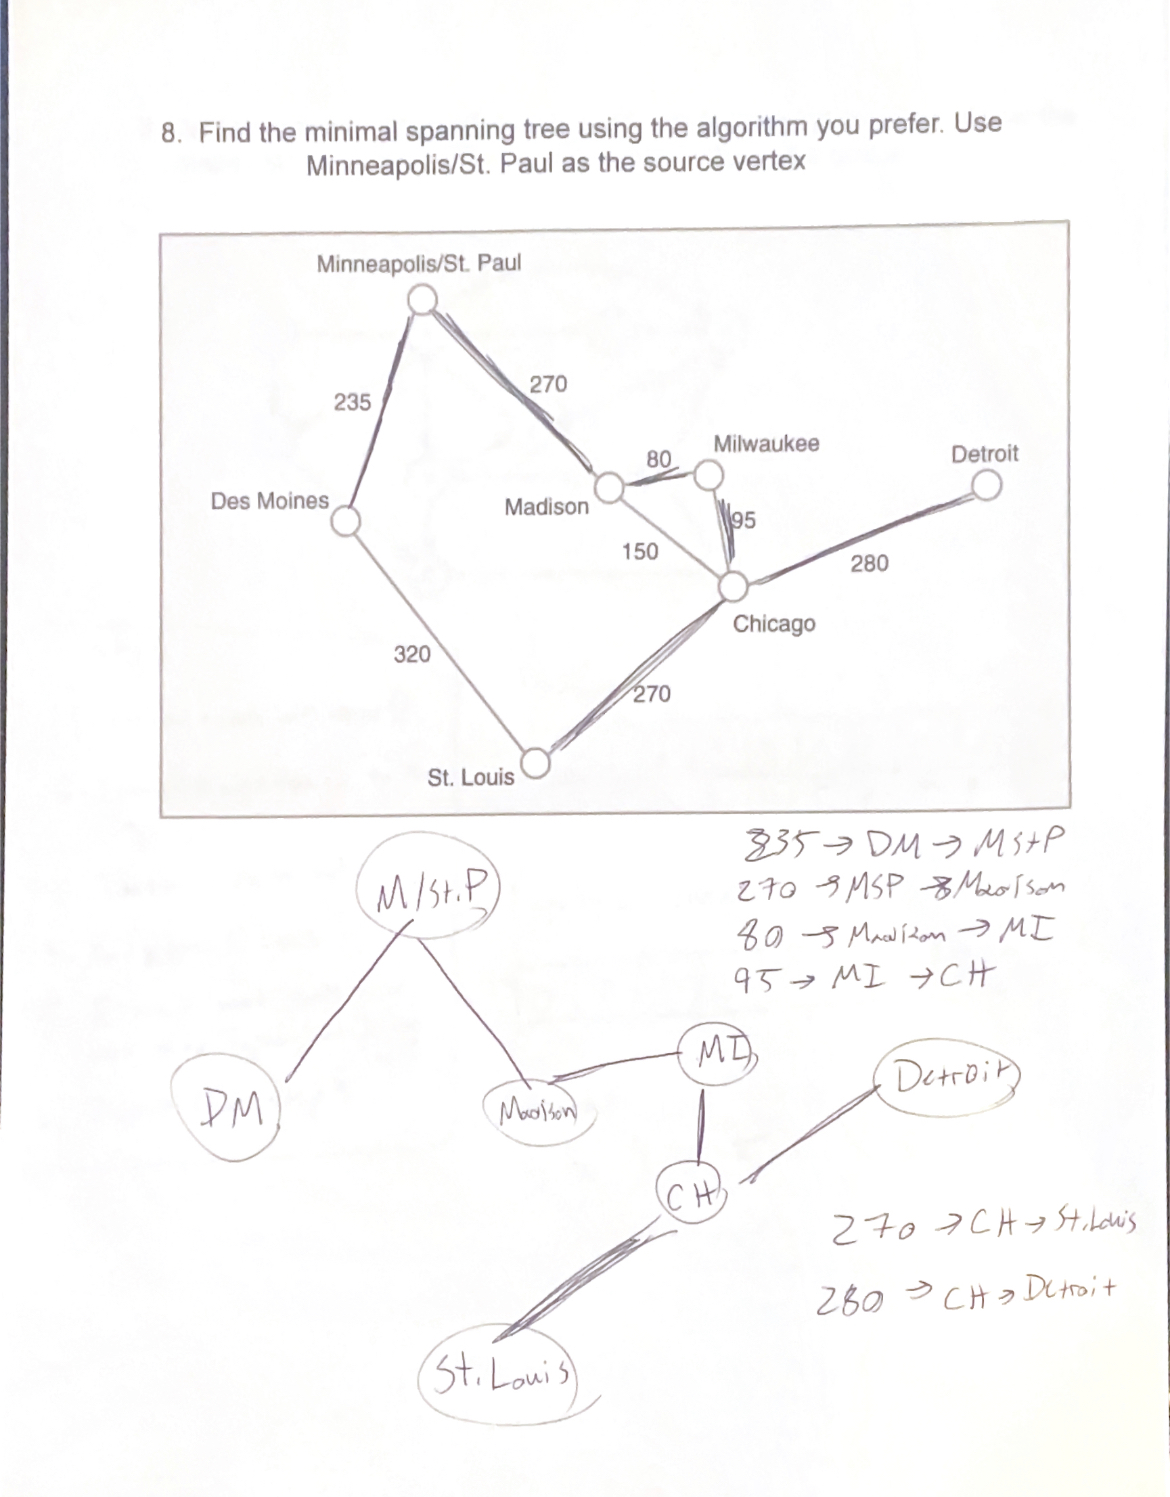 8. Find the minimal spanning tree using the algorithm you prefer. Use
Minneapolis/St. Paul as the source vertex
Minneapolis/St. Paul
270
235
Milwaukee
80
Detroit
Des Moines
Madison
95
150
280
Chicago
320
270
St. Louis
235 → DM → MStP
270 → MSP → Madison
80 → Madison → MI
95 → MI → CH
M/St.P
MI
Detroit
DM
Madison
CH
270 → CH → St.Louis
280 → CH → Detroit
St.Louis